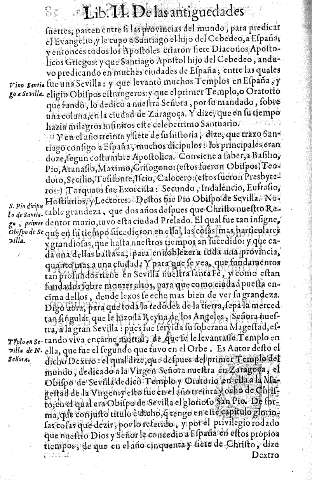 Lib. II. De las antiguedades
suertes, parten entre si las provincias del mundo, para predicar
el Evangelio, y le cupo a Santiago el hijo del Cebedeo, a España, y
entonces todos los Apostoles criaron siete Diaconos Apostolicos
Griegos: y que Santiago Apostol hijo del Cebedeo, andavo
predicando en muchas ciudades de España; entre las quales
Vino Santiago a Sevilla.
fue una Sevilla: y que levantò muchos Templos en España, y
eligiò Obispos estrangeros: y que el primer Templo, o Oratorio
que fundò, lo dedicò a nuestra Señora, por su mandado, sobre
una coluna, en la ciudad de Zaragoça. Y dize, que en su tiempo
hazia milagros infinitos este celeberrimo Santuario.
Y en el año reinta y siete de su historia, dize, que traxo Santiago
consigo a España, muchos dicipulos: los principales eran
doze, segun costumbre Apostolica. Conviene a saber, a Basilio,
Pio, Atanasio, Maximo, Grisogono; (estos fueron Obispos;)
Teodoro, Cecilio, Calocero; (estos fueron Presbyteros:)
Torquato fue Exorcista: Secundo, Indalencio, Eufrasio,
S. Pio dicipulo de Santiago, primer Obispo de Sevilla.
Hostiarios, y Lectores. Destos fue Pio Obispo de Sevilla. Notable
grandeza, que dos años despues que Christo nuestro Redentor
murio, tuvo esta ciudad Prelado. El qual fue tan insigne,
que en su tiempo sucedieron en ella, las cosas mas particulares
y grandiosas, que hasta nuestros tiempos an sucedido: y que cada
una dellas bastava, para ennoblezer a toda una provincia,
quanto mas a una ciudad. Y para que se vea, que fundamentos
tan profundos tiene en Sevilla nuestra santa Fè, y como estan
fundados sobre montes altos, para que como ciudad puesta encima
dellos, donde lexos se eche mas bien de ver su grandeza.
Digo aora, para que toda la redondes de la tierra, sepa la merced
tan singular, que le hizo la Reyna de los Angeles, Señora nuestra,
a la gran Sevilla: pues fue servida su soberana Magestad,
Templo en Sevilla de N. Señora.
estando viva en carne mortal, de que se le levantasse Templo en
ella, que fue el segundo que tuvo en el Orbe. Es Autor desto el
dicho Dextro: el qual dize, que despues del primer Templo del
mundo, dedicado a la Virgen Señora nuestra en Zaragoça, el
Obispo de Sevilla dedicò Templo y Oratorio en ella a la Magestad
de la Virgen: y esto fue en el año treinta y ocho de Christo,
en el qual era Obispo de Sevilla el glorioso San Pio. De forma,
que con justo titulo è dicho, q tengo en este capitulo gloriosas
cosas que dezir, por lo referido, y por el privilegio rodado
que nuestro Dios y Señor le concedio a España en estos propios
tiempos, de que en el año cinquenta y siete de Christo, dize
Dextro